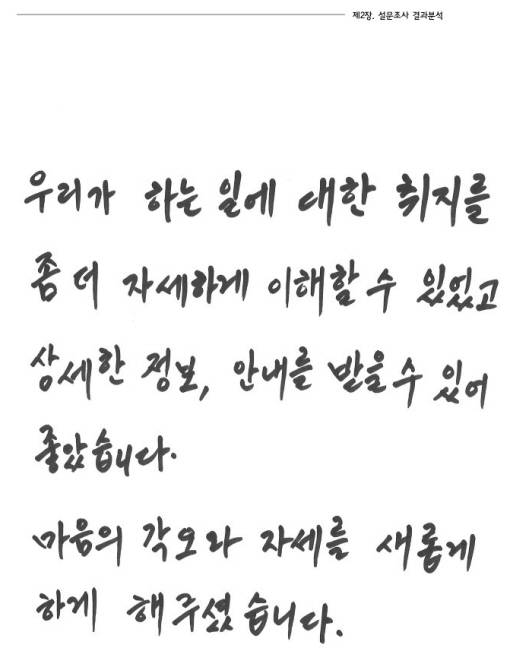 제2장. 설문조사 결과분석
우리가 하는 일에 대한 취지를
좀 더 자세하게 이해할 수 있었고
상세한 정보, 안내를 받을 수 있어
좋았습니다.
마음의 각오와 자세를 새롭게
하게 해주셨습니다.